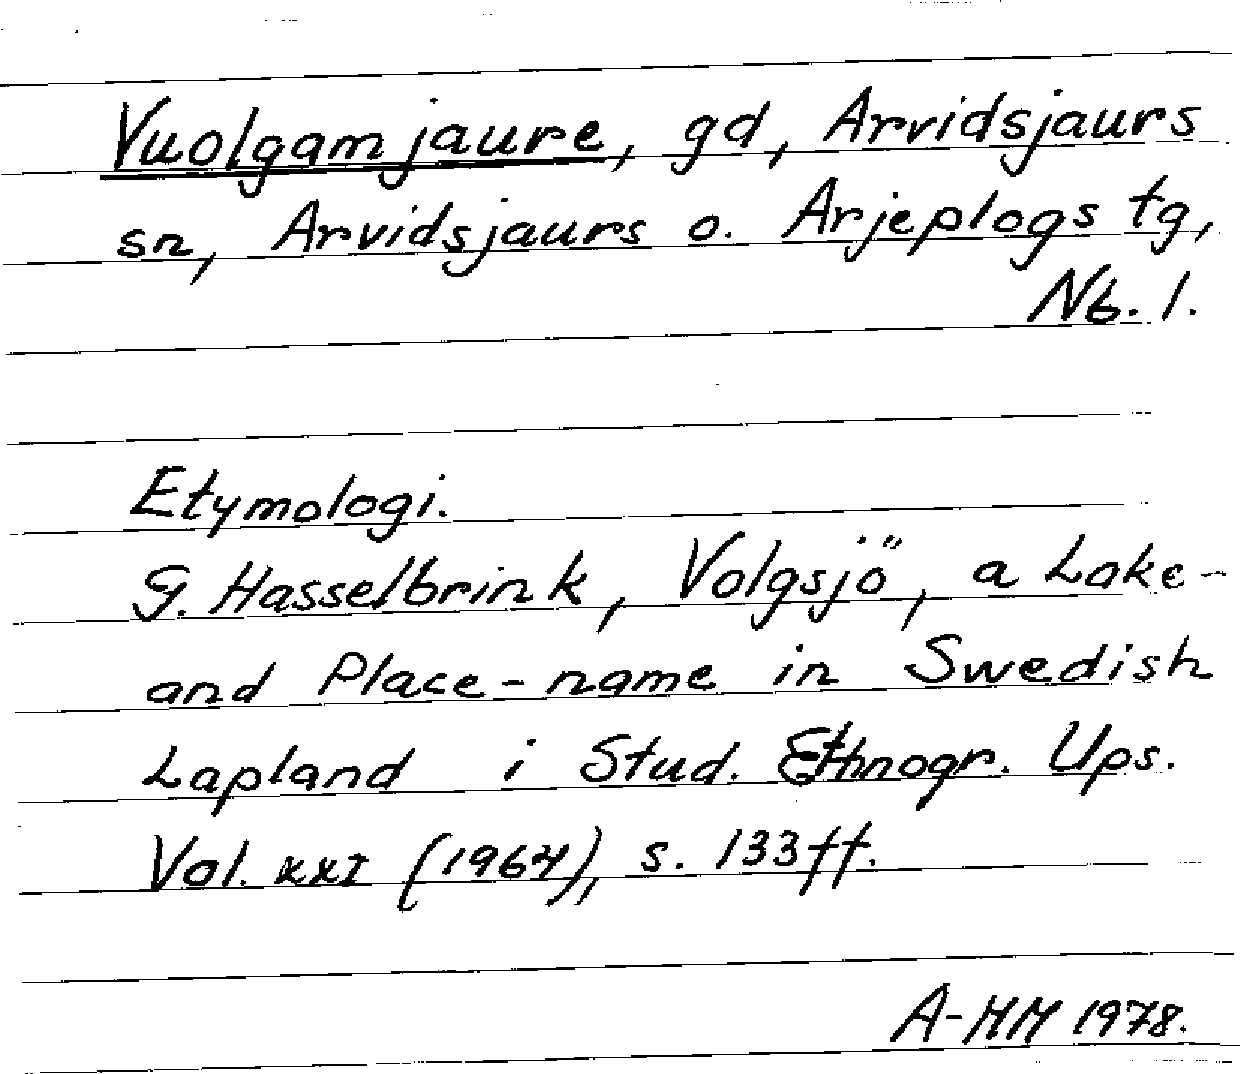 Vuolgamjaure, gd, Arvidsjaurs
sn, Arvidsjaurs o. Arjeplogs tg,
Nb. l.
Etymologi.
G. Hasselbrink, Volgsjö, a Lake-
and Place-name in Swedish
Lapland i Stud. Ethnogr. Ups.
Vol. XXI (1964), s. 133ff.
A-MM 1978.